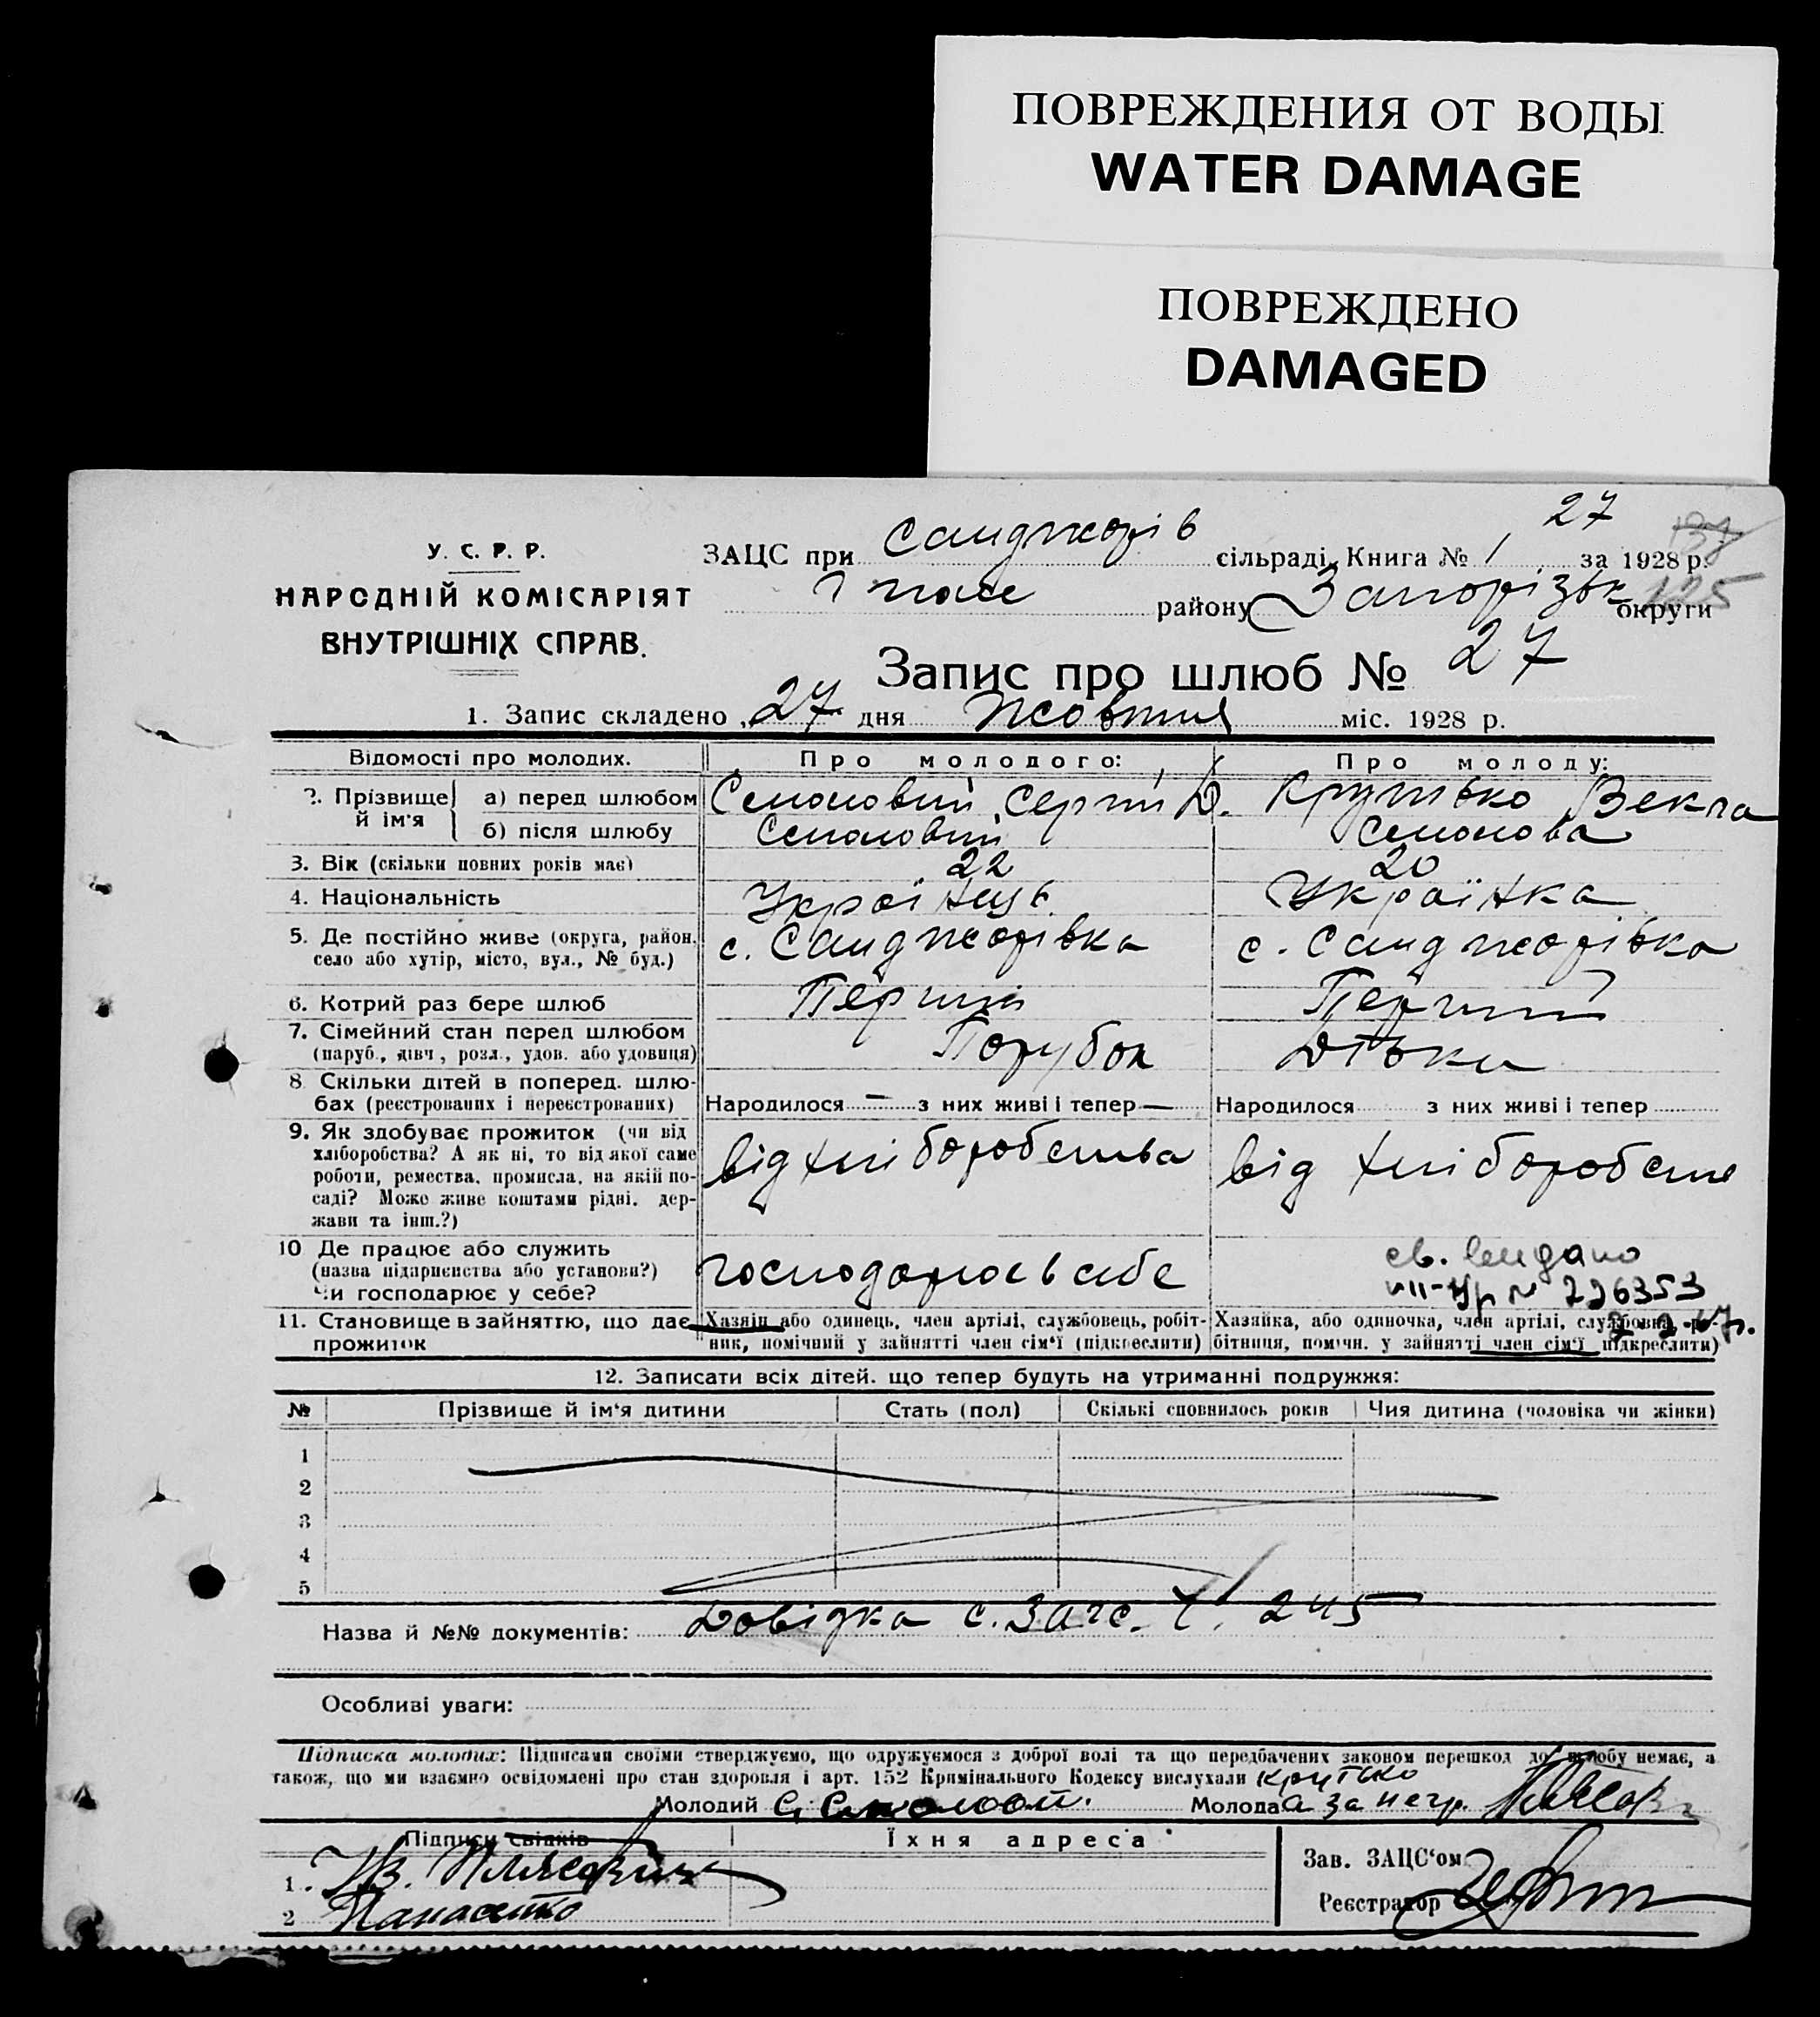 ПОВРЕЖДЕНИЯ ОТ ВОДЫ
WATER DAMAGE
ПОВРЕЖДЕНО
DAMAGED
У. С. Р. Р.
НАРОДНІЙ КОМІСАРІЯТ
ВНУТРІШНІХ СПРАВ.
27
ЗАЦС при Санджарів сільраді. Книга № 1 за 1928 р.
району Запорізьк округи
125
Запис про шлюб № 27
1. Запис складено 27 дня жовтня міс. 1928 р.
Відомості про молодих. Про молодого: Про молоду:
2. Прізвище й ім'я
а) перед шлюбом Сергій Д. Векла
б) після шлюбу
3. Вік (скільки повних років має) 22 20
4. Національність Українець Українка
5. Де постійно живе (округа, район, село або хутір, місто, вул., № буд.) с. Санджарівка с. Санджарівка
6. Котрий раз бере шлюб Перший Перший
7. Сімейний стан перед шлюбом (паруб., дівч., розл., удов. або удовиця) Парубок Дівка
8. Скільки дітей в поперед. шлюбах (реєстрованих і нереєстрованих) Народилося — з них живі і тепер — Народилося з них живі і тепер
9. Як здобуває прожиток (чи від хліборобства? А як ні, то від якої саме роботи, ремества, промисла, на якій посаді? Може живе коштами рідні, держави та інш.?) від хліборобства від хліборобств
10 Де працює або служить (назва підприємства або установи?) Чи господарює у себе? господарює в себе
№ 226353
11. Становище в зайняттю, що дає прожиток
Хазяїн або одинець, член артілі, службовець, робітник, помічний у зайнятті член сім'ї (підкреслити)
Хазяйка, або одиночка, член артілі, службовка, робітниця, помічн. у зайнятті член сім'ї підкреслити)
12. Записати всіх дітей, що тепер будуть на утриманні подружжя:
№ Прізвище й ім'я дитини Стать (пол) Скількі сповнилось років Чия дитина (чоловіка чи жінки)
1
2
3
4
5
Назва й №№ документів: Довідка с. Загс. 245
Особливі уваги:
Підписка молодих: Підписами своїми стверджуємо, що одружуємося з доброї волі та що передбачених законом перешкод до шлюбу немає, а
також, що ми взаємно освідомлені про стан здоровля і арт. 152 Крімінального Кодексу вислухали
Молодий Молода
Підписи свідків Їхня адреса
1.
2
Зав. ЗАЦС'ом
Реєстратор